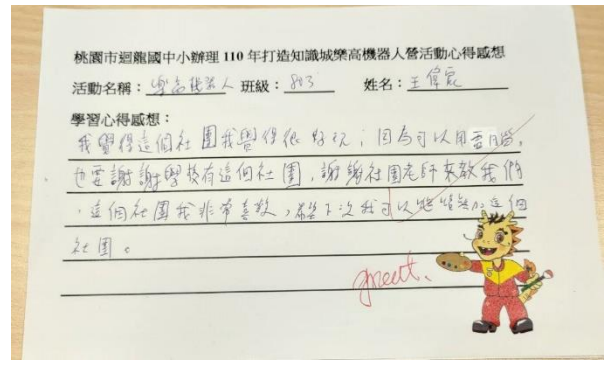 桃園市迴龍國中小辦理 110 年打造知識城樂高機器人營活動心得感想
活動名稱：樂高機器人 班級：803 姓名：王偉宸
學習心得感想：
我覺得這個社團我覺得很好玩；因為可以用電腦，
也要謝謝學校有這個社團，謝謝社團老師來教我們
，這個社團我非常喜歡，希望下次我可以繼續參加這個
社團。
great.